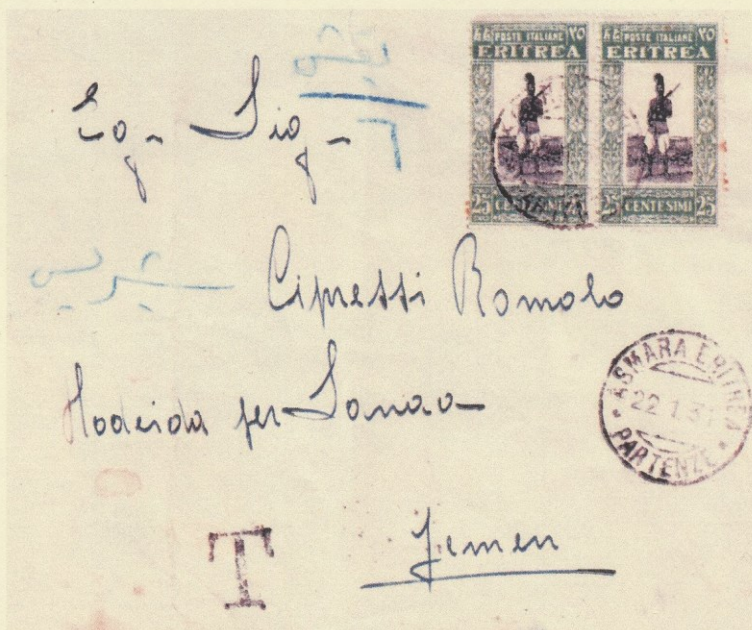 POSTE ITALIANE ٢٥
ERITREA
25 CENTESIMI 25
POSTE ITALIANE ٢٥
ERITREA
25 CENTESIMI 25
Eg. Sig.
Cipretti Romolo
Hodeida per Sanaa
Jemen
T
ASMARA ERITREA
22.1.31
PARTENZE